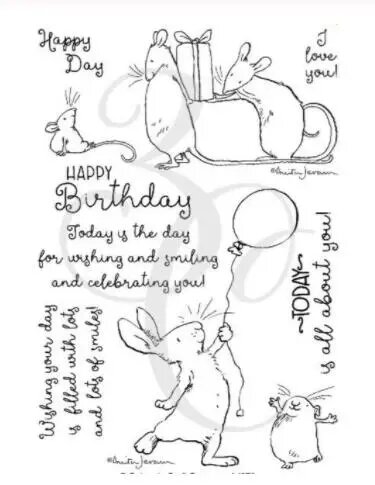 Happy
Day
I
love
you!
©Anita Jeram
HAPPY
Birthday
Today is the day
for wishing and smiling
and celebrating you!
~TODAY~
is all about you!
Wishing your day
is filled with lots
and lots of smiles!
©Anita Jeram